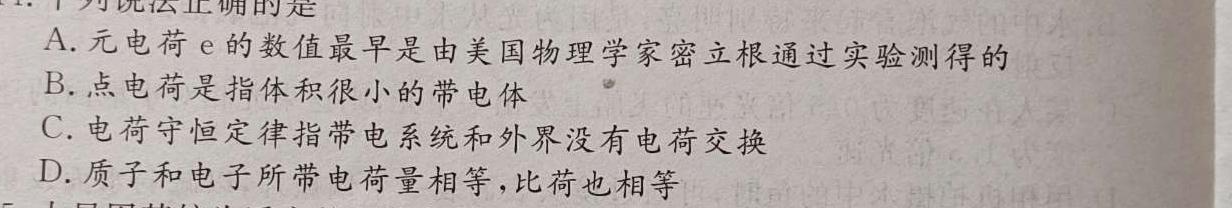 下列说法正确的是
A. 元电荷 e 的数值最早是由美国物理学家密立根通过实验测得的
B. 点电荷是指体积很小的带电体
C. 电荷守恒定律指带电系统和外界没有电荷交换
D. 质子和电子所带电荷量相等,比荷也相等